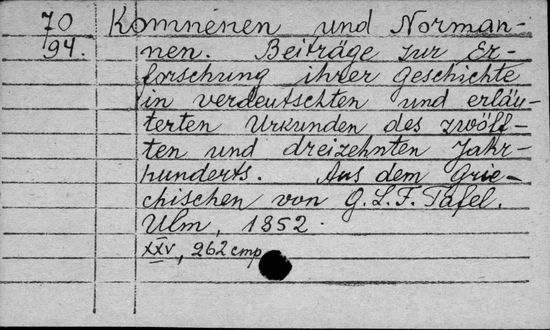 70 Komnenen und Norman-
94. nen. Beiträge zur Er-
forschung ihrer Geschichte
in verdeutschten und erläu-
terten Urkunden des zwölf-
ten und dreizehnten Jahr-
hunderts. Aus dem Grie-
chischen von G. L. F. Tafel.
Ulm, 1852.
XXV, 262 стр.